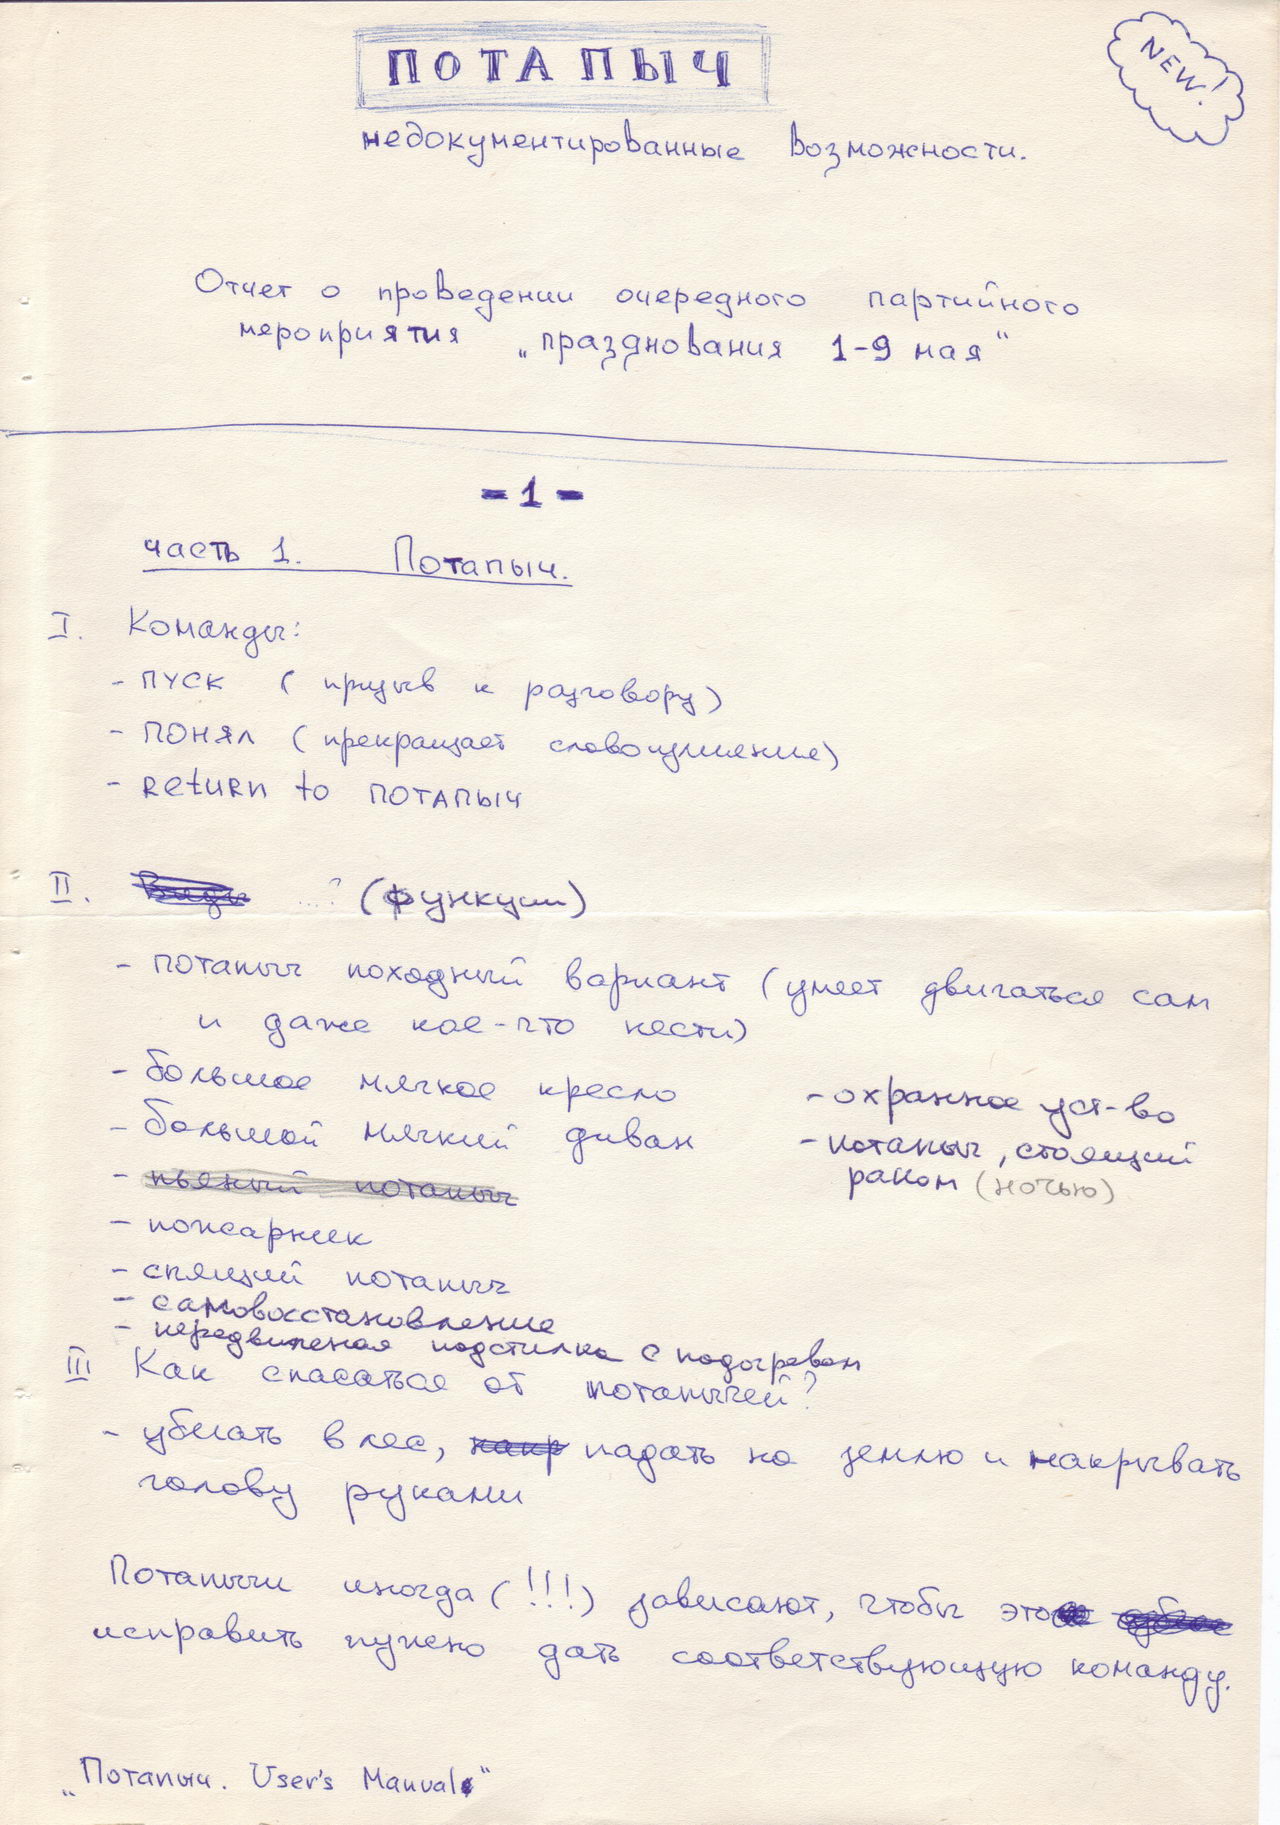 ПОТАПЫЧ
NEW!
недокументированные возможности.
Отчет о проведении очередного партийного
мероприятия „празднования 1-9 мая“
- 1 -
часть 1. Потапыч.
I. Команды:
- ПУСК (призыв к разговору)
- ПОНЯЛ (прекращает словоизлияние)
- RETURN to ПОТАПЫЧ
II. Виды ...? (функции)
- потапыч походный вариант (умеет двигаться сам
и даже кое-что нести)
- большое мягкое кресло
- большой мягкий диван
- пьяный потапыч
- пожарник
- спящий потапыч
- самовосстановление
- передвижная подстилка с подогревом
- охранное уст-во
- потапыч, стоящий
раком (ночью)
III Как спасаться от потапычей?
- убегать в лес, падать на землю и накрывать
голову руками
Потапычи иногда (!!!) зависают, чтобы это
исправить нужно дать соответствующую команду.
„Потапыч. User's Manual“